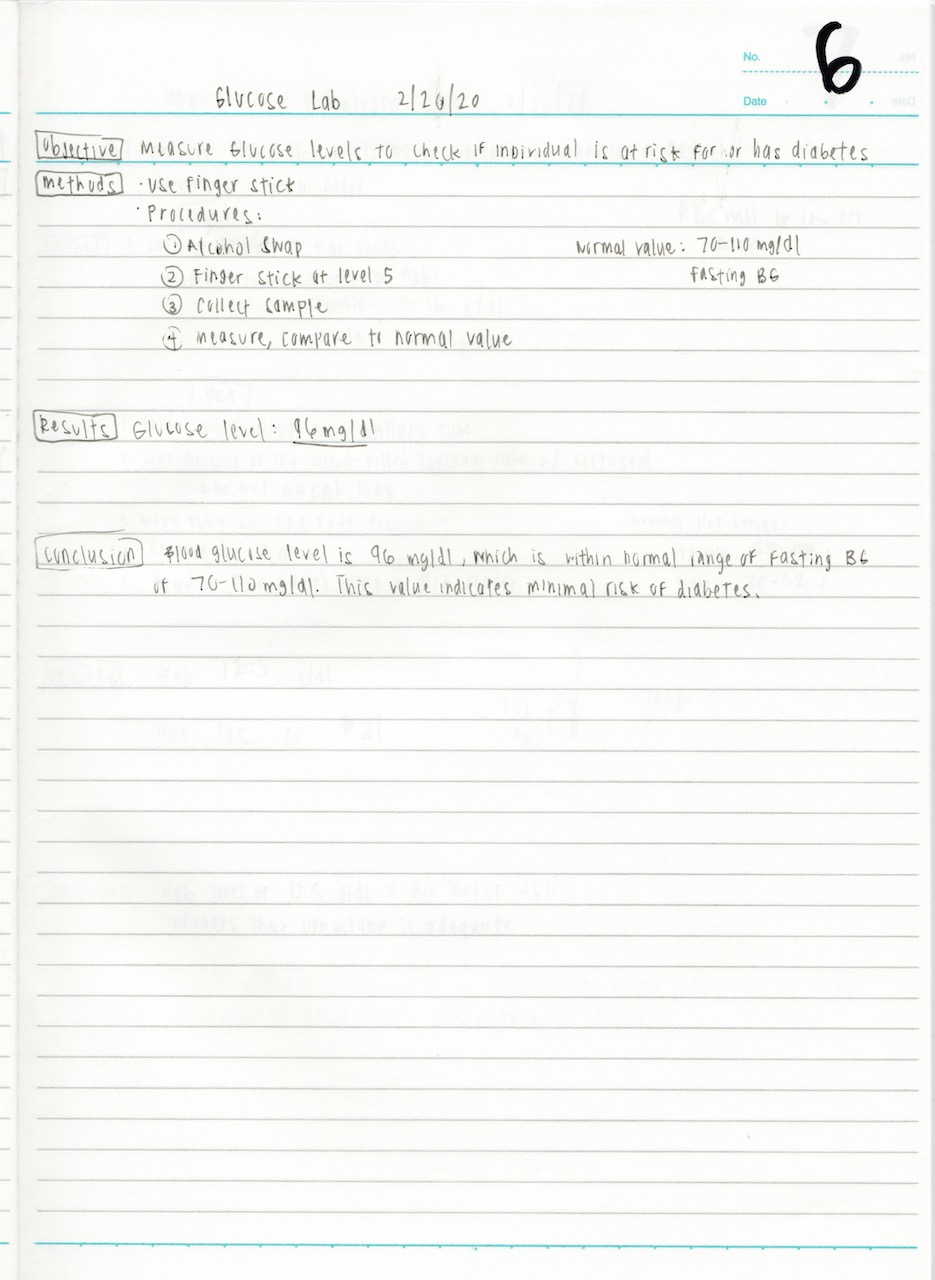 No. 6
Date
Glucose Lab 2/26/20
Objective Measure Glucose levels to check if individual is at risk for or has diabetes
Methods · Use Finger stick
· Procedures:
① Alcohol Swap Normal value: 70-110 mg/dl
② Finger stick at level 5 Fasting BG
③ Collect sample
④ Measure, compare to normal value
Results Glucose level: 96 mg/dl
Conclusion Blood glucose level is 96 mg/dl, which is within normal range of Fasting BG
of 70-110 mg/dl. This value indicates minimal risk of diabetes.